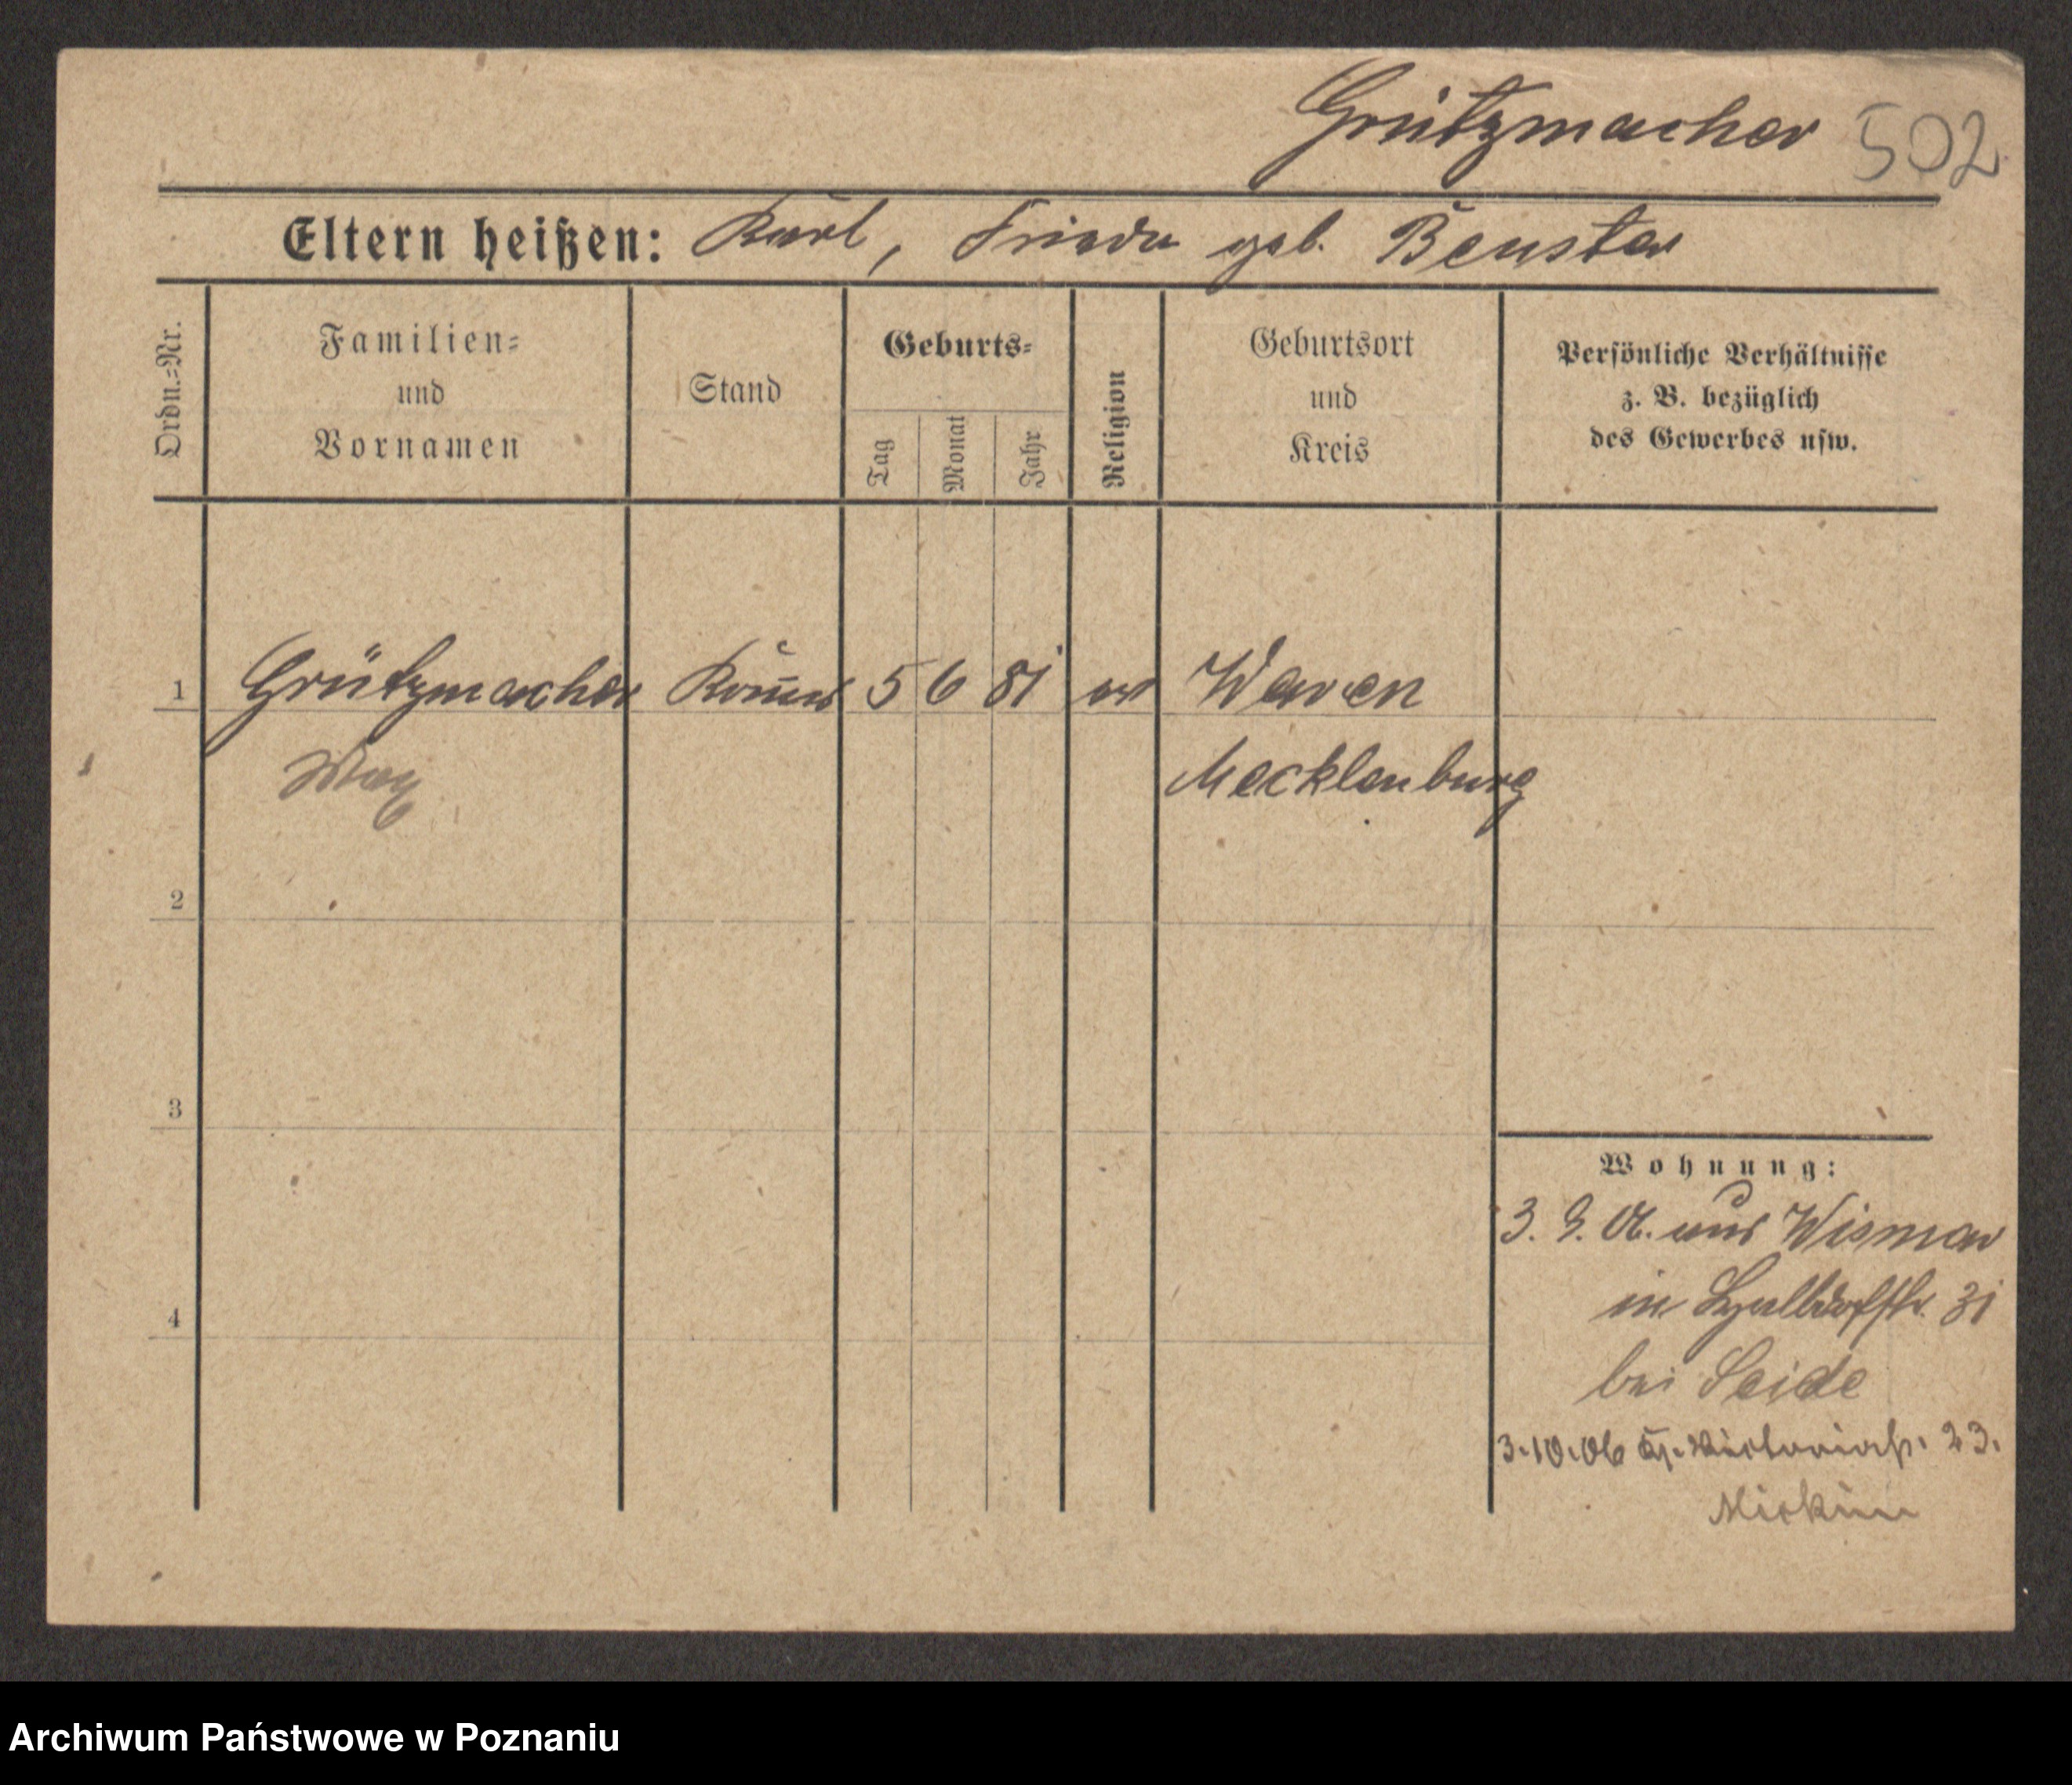 Grützmacher 502
Eltern heißen: Karl, Frieda geb. Beuster
Ordn.=Nr.
Familien=
und
Vornamen
Stand
Geburts=
Tag
Monat
Jahr
Religion
Geburtsort
und
Kreis
Persönliche Verhältnisse
z. B. bezüglich
des Gewerbes usw.
1 Grützmacher 5 6 81 ev Waren
Max Mecklenburg
2
3
4
Wohnung:
3. 9. 06. aus Wismar
in 31
bei Seide
3.10.06 23.
Archiwum Państwowe w Poznaniu